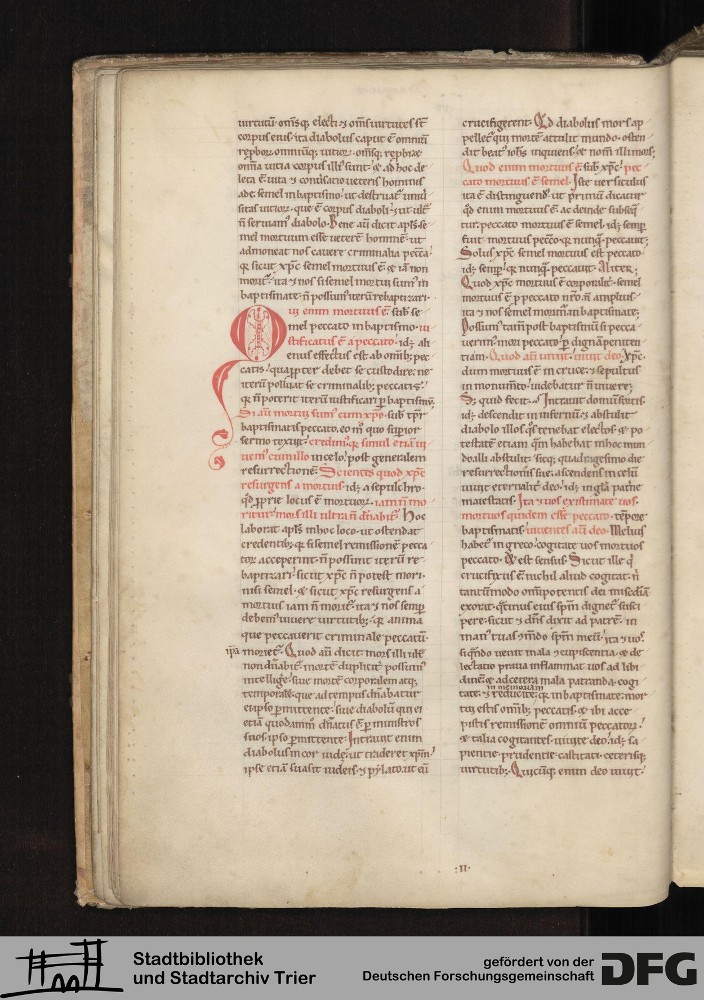 uirtutū· om̄sq; electi ⁊ om̄s uirtutes st̄
corpus eius· ita diabolus caput ē omniū
reꝓboꝝ omniūq; uitioꝝ· om̄sq; reꝓbi ⁊
omīa uitia corpus illi sunt· ⁊ ad hoc de
leta ē uita ⁊ conuersatio ueteris hominis
semel in baptismo· ut destruat᷑ uniū
sitas uitioꝝ· que ē corpus diaboli·
n̄ seruiam᷑ diabolo· Bene aū dicit apl̄s se
mel mortuum esse ueterē hominē· ut
admoneat nos cauere criminalia peccā·
q; sicut xp̄c semel mortuus ē ⁊ iā non
morit᷑· ita ⁊ nos si semel mortui sum᷒ in
baptismate· n̄ possum᷒ iterū rebaptizari·
Qui enim mortuus ē· sub se
mel peccato in baptismo· iu
stificatus ē a peccato· idē alt
enus effectus est ab om̄ib; pec
catis· quapp̄ter debet se custodire· ne
iterū polluat se criminalib; peccatis·
q; n̄ poterit iterū iustificari ꝑ baptismū·
Si aū mortui sum᷒ cum xp̄o· sub
baptismatis peccato· eo mō quo supior
sermo texuit· credim᷒ q; simul etiā ui
uem᷒ cum illo in celo post generalem
resurrectionē· Scientes quod xp̄c
resurgens a mortuis· idē a sepulchro·
qd̄ ꝓprie locus ē mortuoꝝ· iam n̄ mo
ritur· mors illi ultra n̄ dn̄abit᷑· Hoc
laborat apl̄s in hoc loco· ut ostendat
credentib;· q; si semel remissionē pecca
toꝝ acceperint· n̄ possunt iterū re
baptizari· sicut xp̄c n̄ potest mori·
nisi semel· ⁊ sicut xp̄c resurgens a
mortuis iam n̄ morit᷑· ita ⁊ nos semꝑ
debem᷒ uiuere uirtutib;· q; anima
que peccauerit criminale peccatū·
ipa moriet᷑· Quod aū dicit· mors illi ult̄
non dn̄abit᷑· mortē duplicit᷑ possum᷒
intellige· siue mortē corporalem atq;
temporalē· que ad tempus dn̄abatur
ei ipso ꝑmittente· siue diabolū qui ei
etiā quodāmō dn̄atus ē ꝑ ministros
suos· ipso ꝑmittente· Intrauit enim
diabolus in cor iudę· ut traderet xp̄m·
ipse etiā suasit iudeis ⁊ pylato· ut eū
crucifigerent· Qd̄ diabolus mors ap
pellet᷑· qui mortē attulit mundo· osten
dit beat᷒ ioh̄s inquiens· ⁊ nom̄ illi mors·
Quod enim mortuus ē· sub xp̄c· pec
cato mortuus ē semel· Iste uersiculus
ita ē distinguend᷒· ut primū dicatur
qd̄ enim mortuus ē· ac deinde subseq̄
tur· peccato mortuus ē semel· idē semꝑ
fuit mortuus peccō· q; nunq̄ peccauit·
Solus xp̄c semel mortuus est peccato
idē semꝑ· q; nunq̄ peccauit· Aliter·
Quod xp̄c mortuus ē corporalit᷑· semel
mortuus ē ꝑ peccato nr̄o· n̄ amplius
ita ⁊ nos semel morim᷑ in baptismate·
Possum᷒ tam̄ post baptismū si pecca
uerim᷒ mori peccato ꝑ dignā peniten
tiam· Quod aū uiuit· uiuit deo· Xp̄c·
dum mortuus ē in cruce· ⁊ sepultus
in monum̄to· uidebatur n̄ uiuere·
Sꝫ quid fecit· Intrauit domū fortis·
idē descendit in infernū· ⁊ abstulit
diabolo illos q̄s tenebat electos· ⁊ po
testatē etiam q̄m habebat in hoc mun
do alli abstulit· sicq; quadragesimo die
resurrectionis sue· ascendens in celū
uiuit eternalit᷑ deo· idē in gl̄a patne
maiestatis· Ita ⁊ uos existimate uos
mortuos quidem esse peccato· tēpore
baptismatis· uiuentes aū deo· Melius
habet᷑ in greco· cogitate uos mortuos
peccato· ⁊ est sensus· Sicut ille q̄
crucifixus ē nichil aliud cogitat· n̄
tantūmodo om̄ipotentis dei mīscdiā
exorat· q̄tinus eius spm̄ dignet᷑ susci
pere· sicut ⁊ dn̄s dixit ad patrē· in
man᷒ tuas cm̄do spm̄ meū· ita ⁊ uos
si q̄ndo uenit mala cōcupiscentia ⁊ de
lectatio praua inflammat uos ad libi
dinē ⁊ ad cetera mala patranda· cogi
tate ⁊ in memoriam reducite· q; in baptismate· mor
tui estis om̄ib; peccatis· ⁊ ibi acce
pistis remissionē omnium peccatoꝝ·
⁊ talia cogitantes· uiuite deo· idē sa
pientie· prudentie· castitati· ceterisq;
uirtutib;· Quicūq; enim deo uiuit·
·II·
Stadtbibliothek
und Stadtarchiv Trier
gefördert von der
Deutschen Forschungsgemeinschaft
DFG